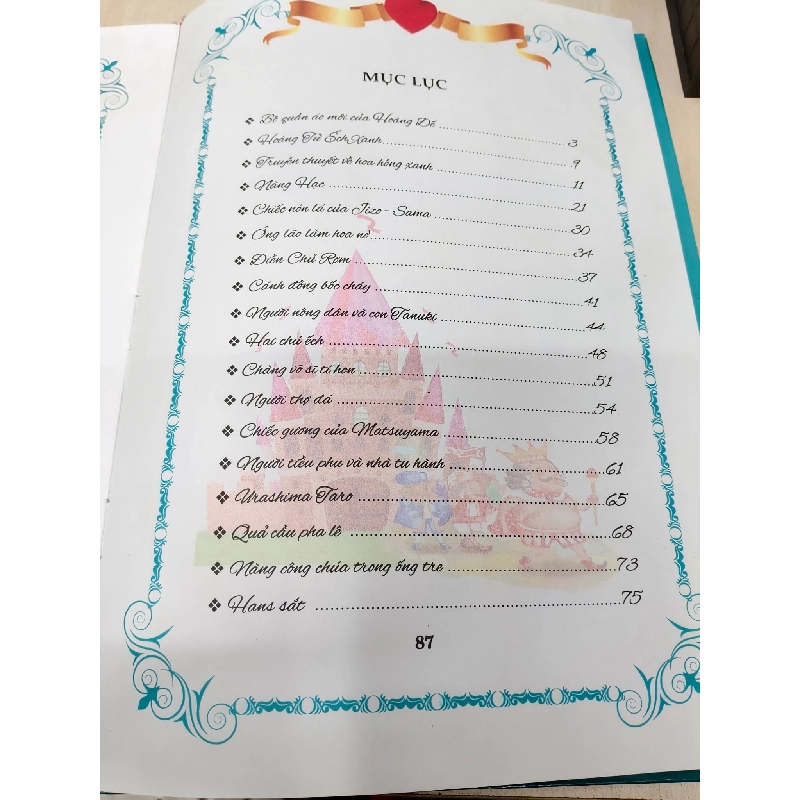 MỤC LỤC
❖ Bộ quần áo mới của Hoàng Đế ........ 3
❖ Hoàng Tử Ếch Xanh ........ 9
❖ Truyền thuyết về hoa hồng xanh ........ 11
❖ Nàng Hạc ........ 21
❖ Chiếc nón lá của Jizo - Sama ........ 30
❖ Ông lão làm hoa nở ........ 34
❖ Điền Chủ Rơm ........ 37
❖ Cánh đồng bốc cháy ........ 41
❖ Người nông dân và con Tanuki ........ 44
❖ Hai chú ếch ........ 48
❖ Chàng võ sĩ tí hon ........ 51
❖ Người thợ đá ........ 54
❖ Chiếc gương của Matsuyama ........ 58
❖ Người tiều phu và nhà tu hành ........ 61
❖ Urashima Taro ........ 65
❖ Quả cầu pha lê ........ 68
❖ Nàng công chúa trong ống tre ........ 73
❖ Hans sắt ........ 75
87